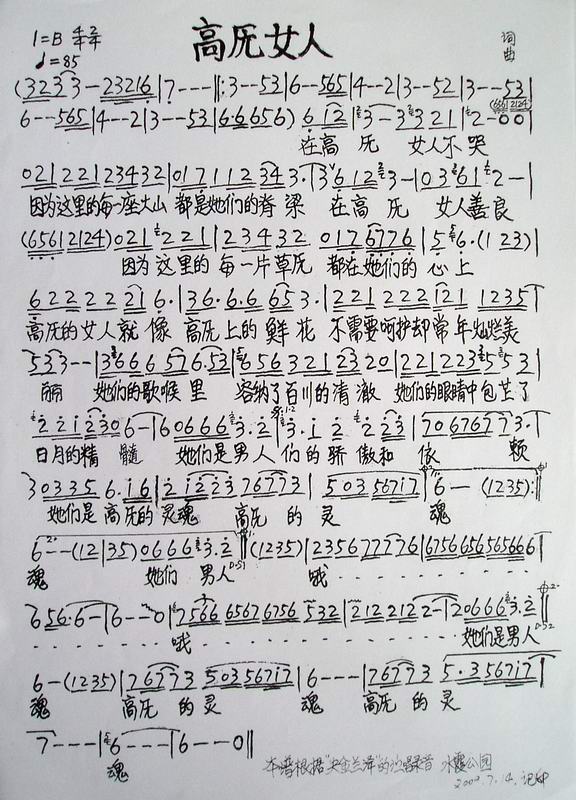 高原女人
1=B 4/4 2/4
♩=85
词
曲
(3 2 3 3 - 2 3 2 1 6 | 7 - - - ‖: 3 - - 5 3 | 6 - - 5 6 5 | 4 - - 2 | 3 - - 5 2 | 3 - - - 5 3 |
6 - - - 5 6 5 | 4 - - 2 | 3 - - 5 3 | 6·6 6 5 6) 6 1 2 | 3 - 3 3 2 1 | 2 - 0 0 |
在高 原 女人不哭
0 2 1 2 2 1 2 3 4 3 2 | 0 1 7 1 1 2 3 4 3· | 3 6 1 2 3 - | 0 3 6 1 2 - |
因为这里的每一座大山 都是她们的脊 梁 在高 原 女人善良
(6 5 6 1 2 1 2 4) 0 2 1 2 2 1 | 2 3 4 3 2 0 1 7 6 7 7 6 | 5 6·(1 2 3) |
因为 这里的 每一片草原 都在她们的 心上
6 2 2 2 2 2 2 1 6· | 3 6·6·6 6 5 3· | 2 2 1 2 2 2 1 2 1 1 2 3 5 |
高原的女人就 像 高原上的 鲜 花 不需要呵护却常年灿烂美
5 3 3 - - | 3 6 6 6 5 7 6·5 3 | 6 5 6 3 2 1 2 3 2 0 | 2 2 1 2 2 3 5 5 3 |
丽 她们的歌喉里 容纳了百川的清澈 她们的眼睛中包芒了
2 2 1 2 3 0 6 - | 6 0 6 6 6 3·2 | 3·1 2 2 2 3 | 7 0 6 7 6 7 7 3· |
日月的精 髓 她们是男人 们的 骄 傲和 依 赖
3 0 3 3 5 6·1 6 | 2 1 2 2 3 7 6 7 7 3 | 5 0 3 5 6 7 1 7 | 6 - - (1 2 3 5) :‖
她们是 高原的灵魂 高原 的 灵 魂
6 - - - (1 2 | 3 5) 0 6 6 6 3·2 ‖ (1 2 3 5) | 2 3 5 6 7 7 7 7 6 | 6 7 5 6 6 5 6 5 6 5 6 6 6 |
魂 她们 男人 D.S1 哦
6 5 6·6 - | 6 - - 0 | 7 5 6 6 6 5 6 7 6 7 5 6 5 3 2 | 2 1 2 2 1 2 2 - | 2 0 6 6 6 3·2 ‖
哦 她们是男人 D.S2
6 - (1 2 3 5) | 7 6 7 7 3 5 0 3 5 6 7 1 7 | 6 - - - | 7 6 7 7 3 5·3 5 6 7 1 7 |
魂 高原 的 灵 魂 高原 的 灵
7 - - - | 6 - - - | 6 - - 0 ‖
魂
本谱根据"央金兰泽"的演唱录音 水霞公园
2009.7.14.记